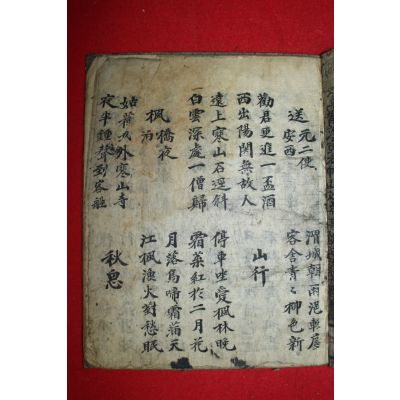 送元二使
安西
渭城朝雨浥輕塵
客舍青々柳色新
勸君更進一盃酒
西出陽関無故人
山行
遠上寒山石逕斜
白雲深處一僧歸
停車坐愛楓林晩
霜葉紅於二月花
楓橋夜
泊
月落烏啼霜滿天
江楓漁火對愁眠
姑蘓城外寒山寺
夜半鍾聲到客船
秋思